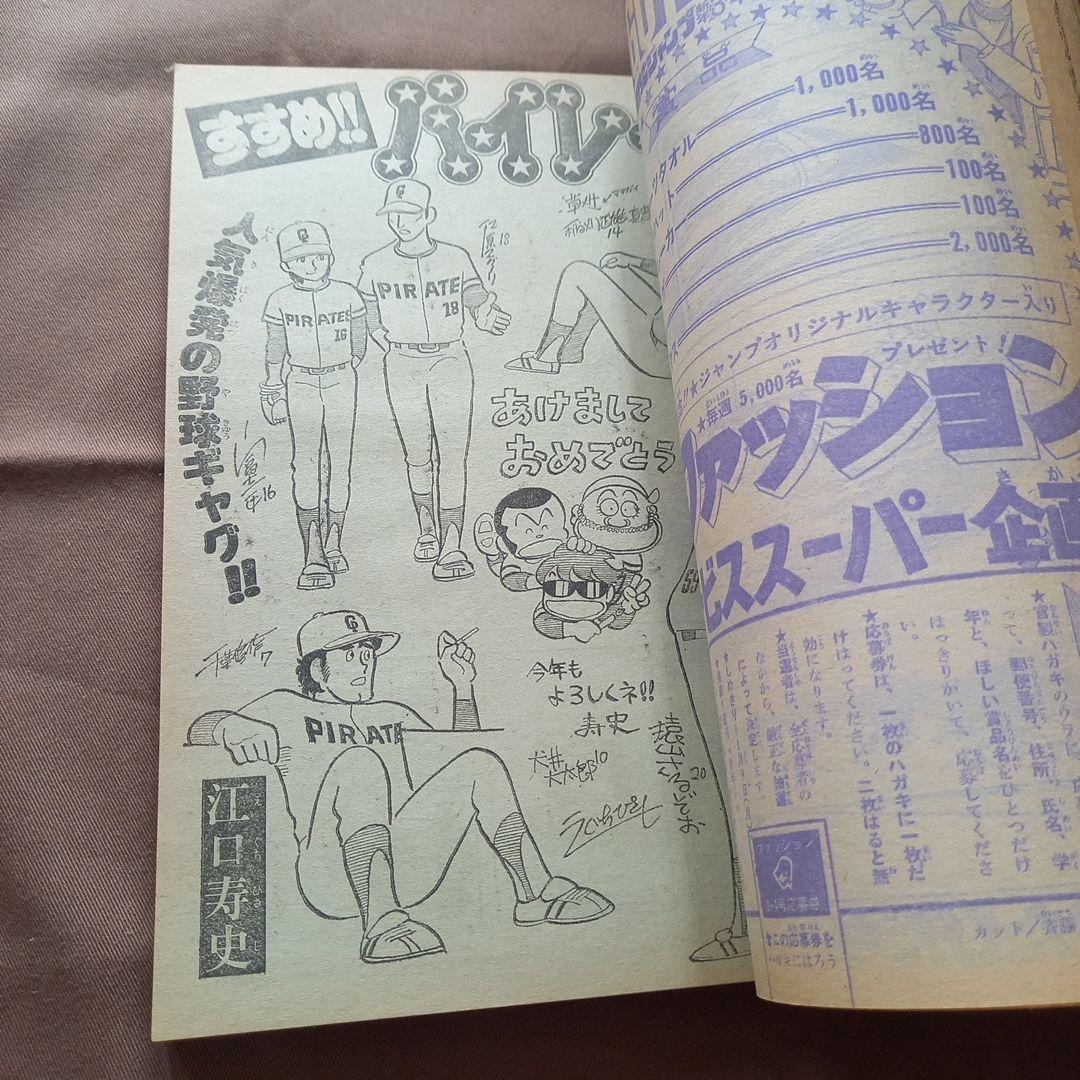 すすめ!!
パイレ
人気爆発の野球ギャグ!!
PIRATES
16
PIRATE
18
14
あけまして
おめでとう
富士平16
7
PIRATE
今年も
よろしくネ!!
寿史
犬井
犬太郎10
遠山さるでお
20
えぐちひさし
江口寿史
えぐちひさし
1,000名
1,000名
800名
100名
100名
2,000名
タオル
★ジャンプオリジナルキャラクター入り
プレゼント!
★毎週5,000名
ァッション
ビススーパー企画
★官製ハガキのウラに、
って、郵便番号、住所、氏名、学
年と、ほしい賞品名をひとつだけ
はっきりかいて、応募してくださ
い。
★応募券は、一枚のハガキに一枚だ
けはってください。二枚はると無
効になります。
★当選者は、全応募者の
なかから、厳正な抽選
によって決定します。
ファッション
3・4号応募券
★この応募券を
ハガキにはろう
カット/斉藤